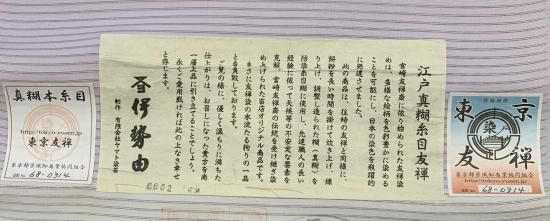 江戸真糊糸目友禅
宮崎友禅斎に依り始められた友禅染
めは、多様な絵柄を色彩豊かに染める
ことを可能にし、日本の染色を飛躍的
に発達させました。
此の商品は、往時の友禅と同様に、
餅粉を長い時間を掛けて炊き上げ、練
り上げ、調整し造られた糊(真糊)を
防染糸目糊に使用し、先達職人の長い
経験に依って天候等の不安定な要素を
克服し、宮崎友禅斎の伝統を受け継ぎ染
め上げられた当店オリジナル商品です。
まさに友禅染の水流たる拘りの一品
と自負しております。
ご覧の様に、優しく温もりに満ちた
仕上がりは、お召しになった貴方を尚
一層上品に引き立てることでしょう。
永くご愛用戴ければ此の上なき幸
と存じます。
制作 有限会社ヤマト染芸
真糊本糸目
http://tokyo-yuzen.jp
東京友禅
東京都染織物商業協同組合
68-0314
登録商標
東京
染
友禅
http://tokyo-yuzen.jp
東京都染織物商業協同組合
68-0314
6602